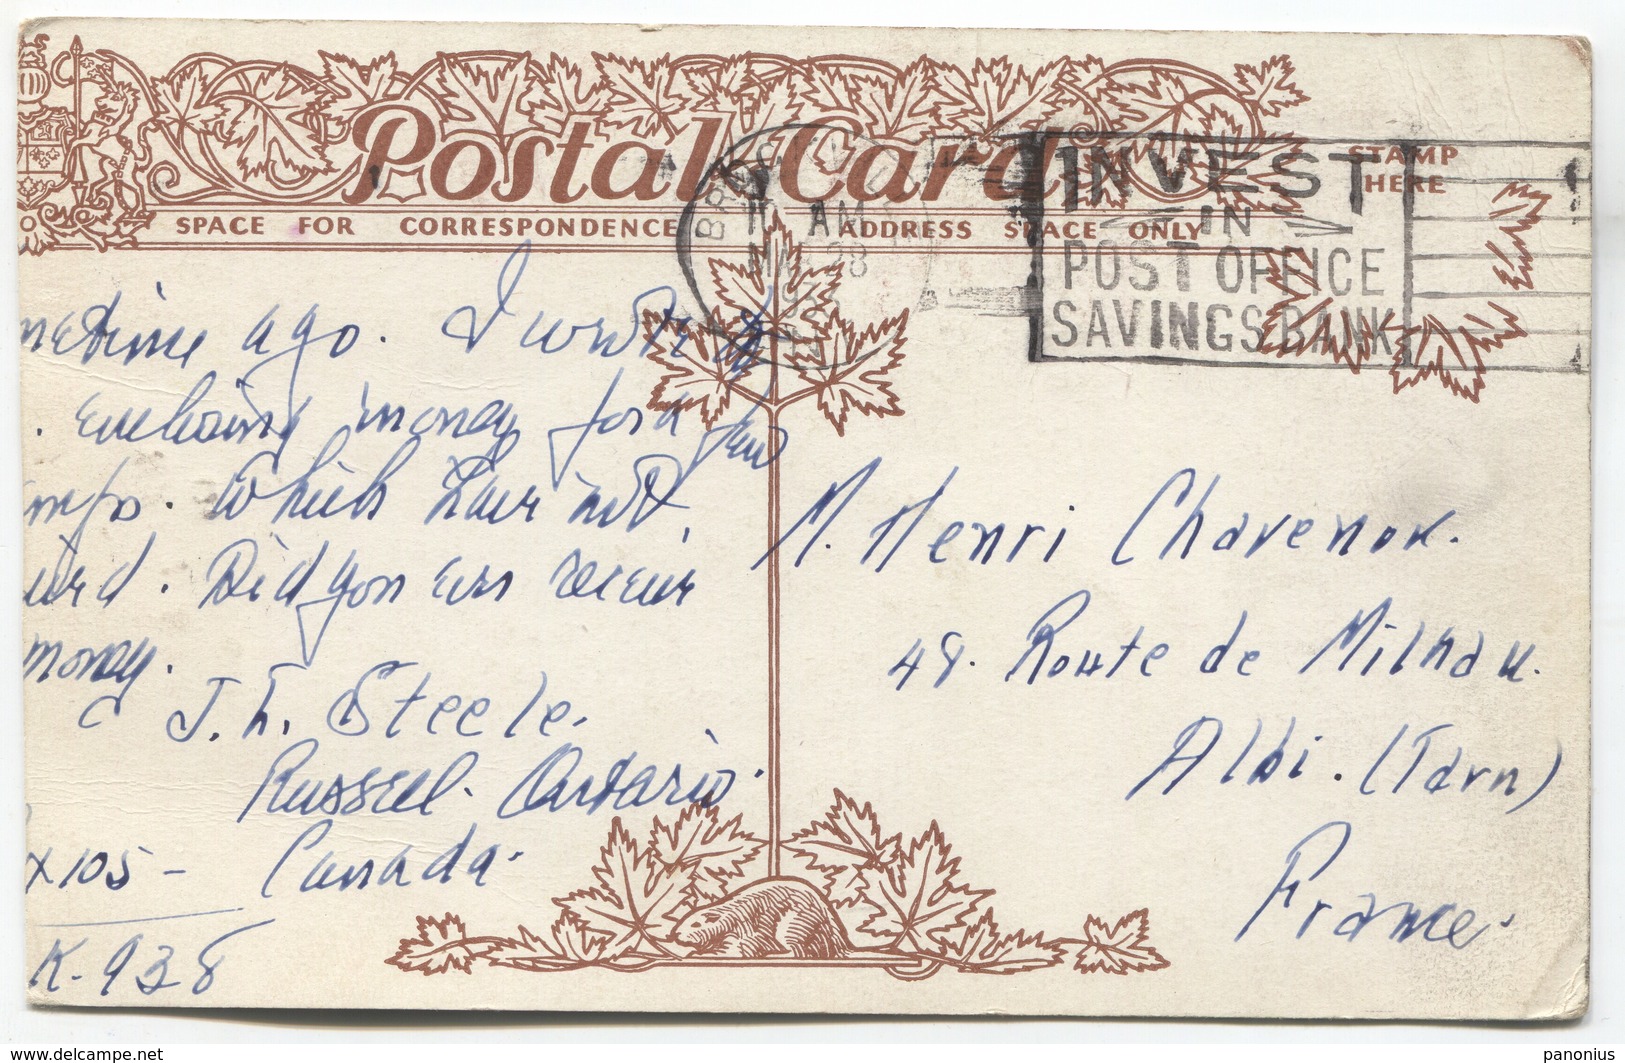 Postal Card
SPACE FOR CORRESPONDENCE
ADDRESS SPACE ONLY
STAMP
HERE
AM
28
INVEST
IN
POST OFFICE
SAVINGS BANK
metime ago. I wrote
. enclosing money for a few
mps. Which have not
. Did you ever receive
money.
J. L. Steele.
Russell. Ontario.
Canada.
x 105 -
K. 938
M. Henri Chavenon.
48. Route de Milhau.
Albi. (Tarn)
France.
panonius